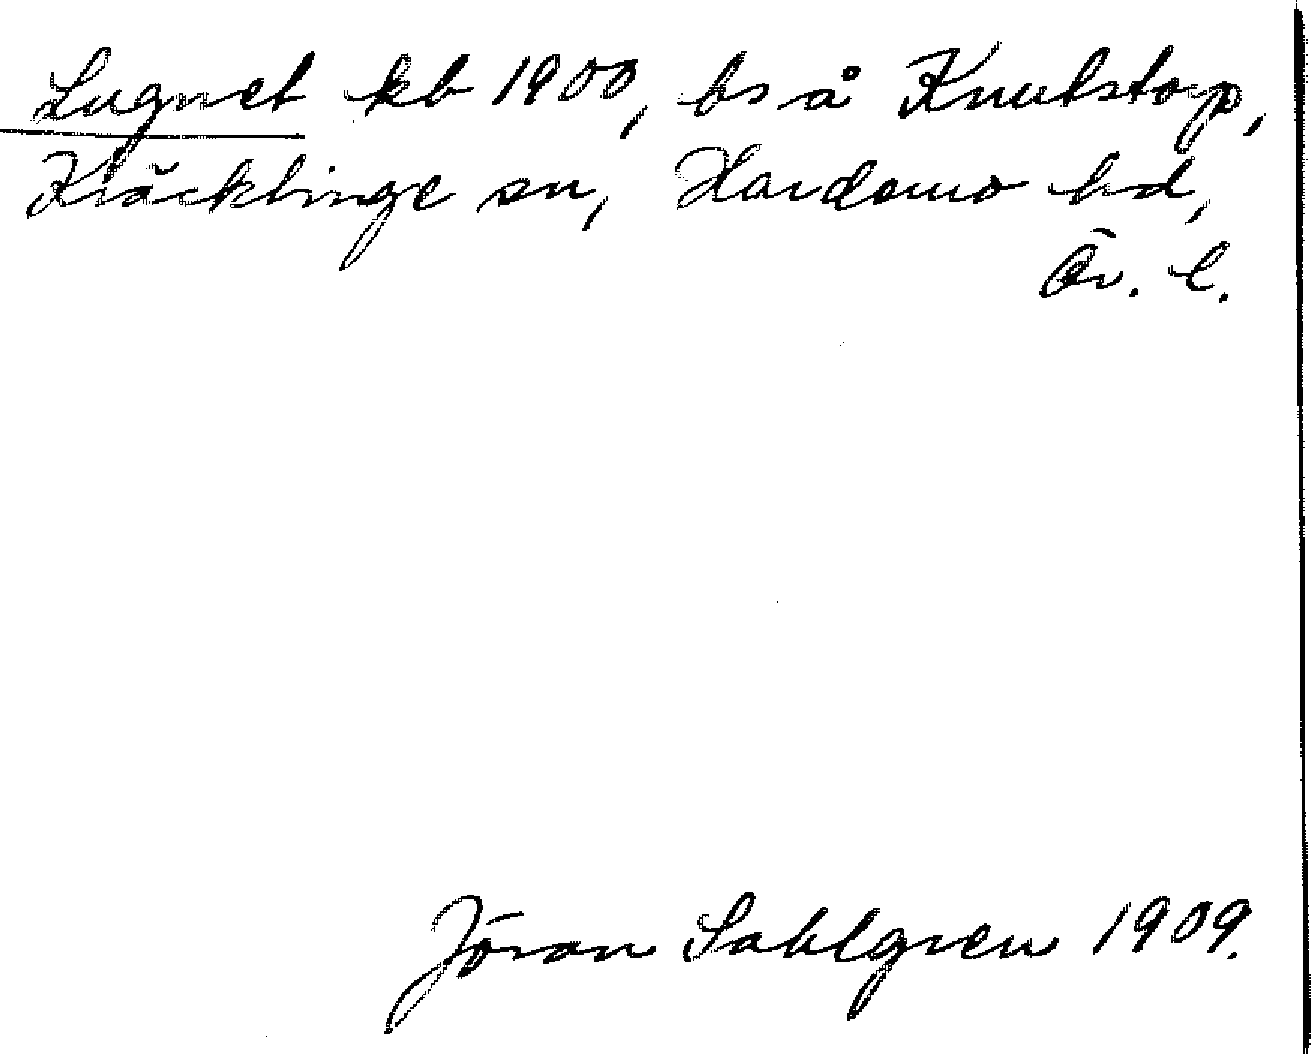 Lugnet kb 1900, bs å Knutstorp,
Kräcklinge sn, Hardemo hd,
Ör. l.
Jöran Sahlgren 1909.